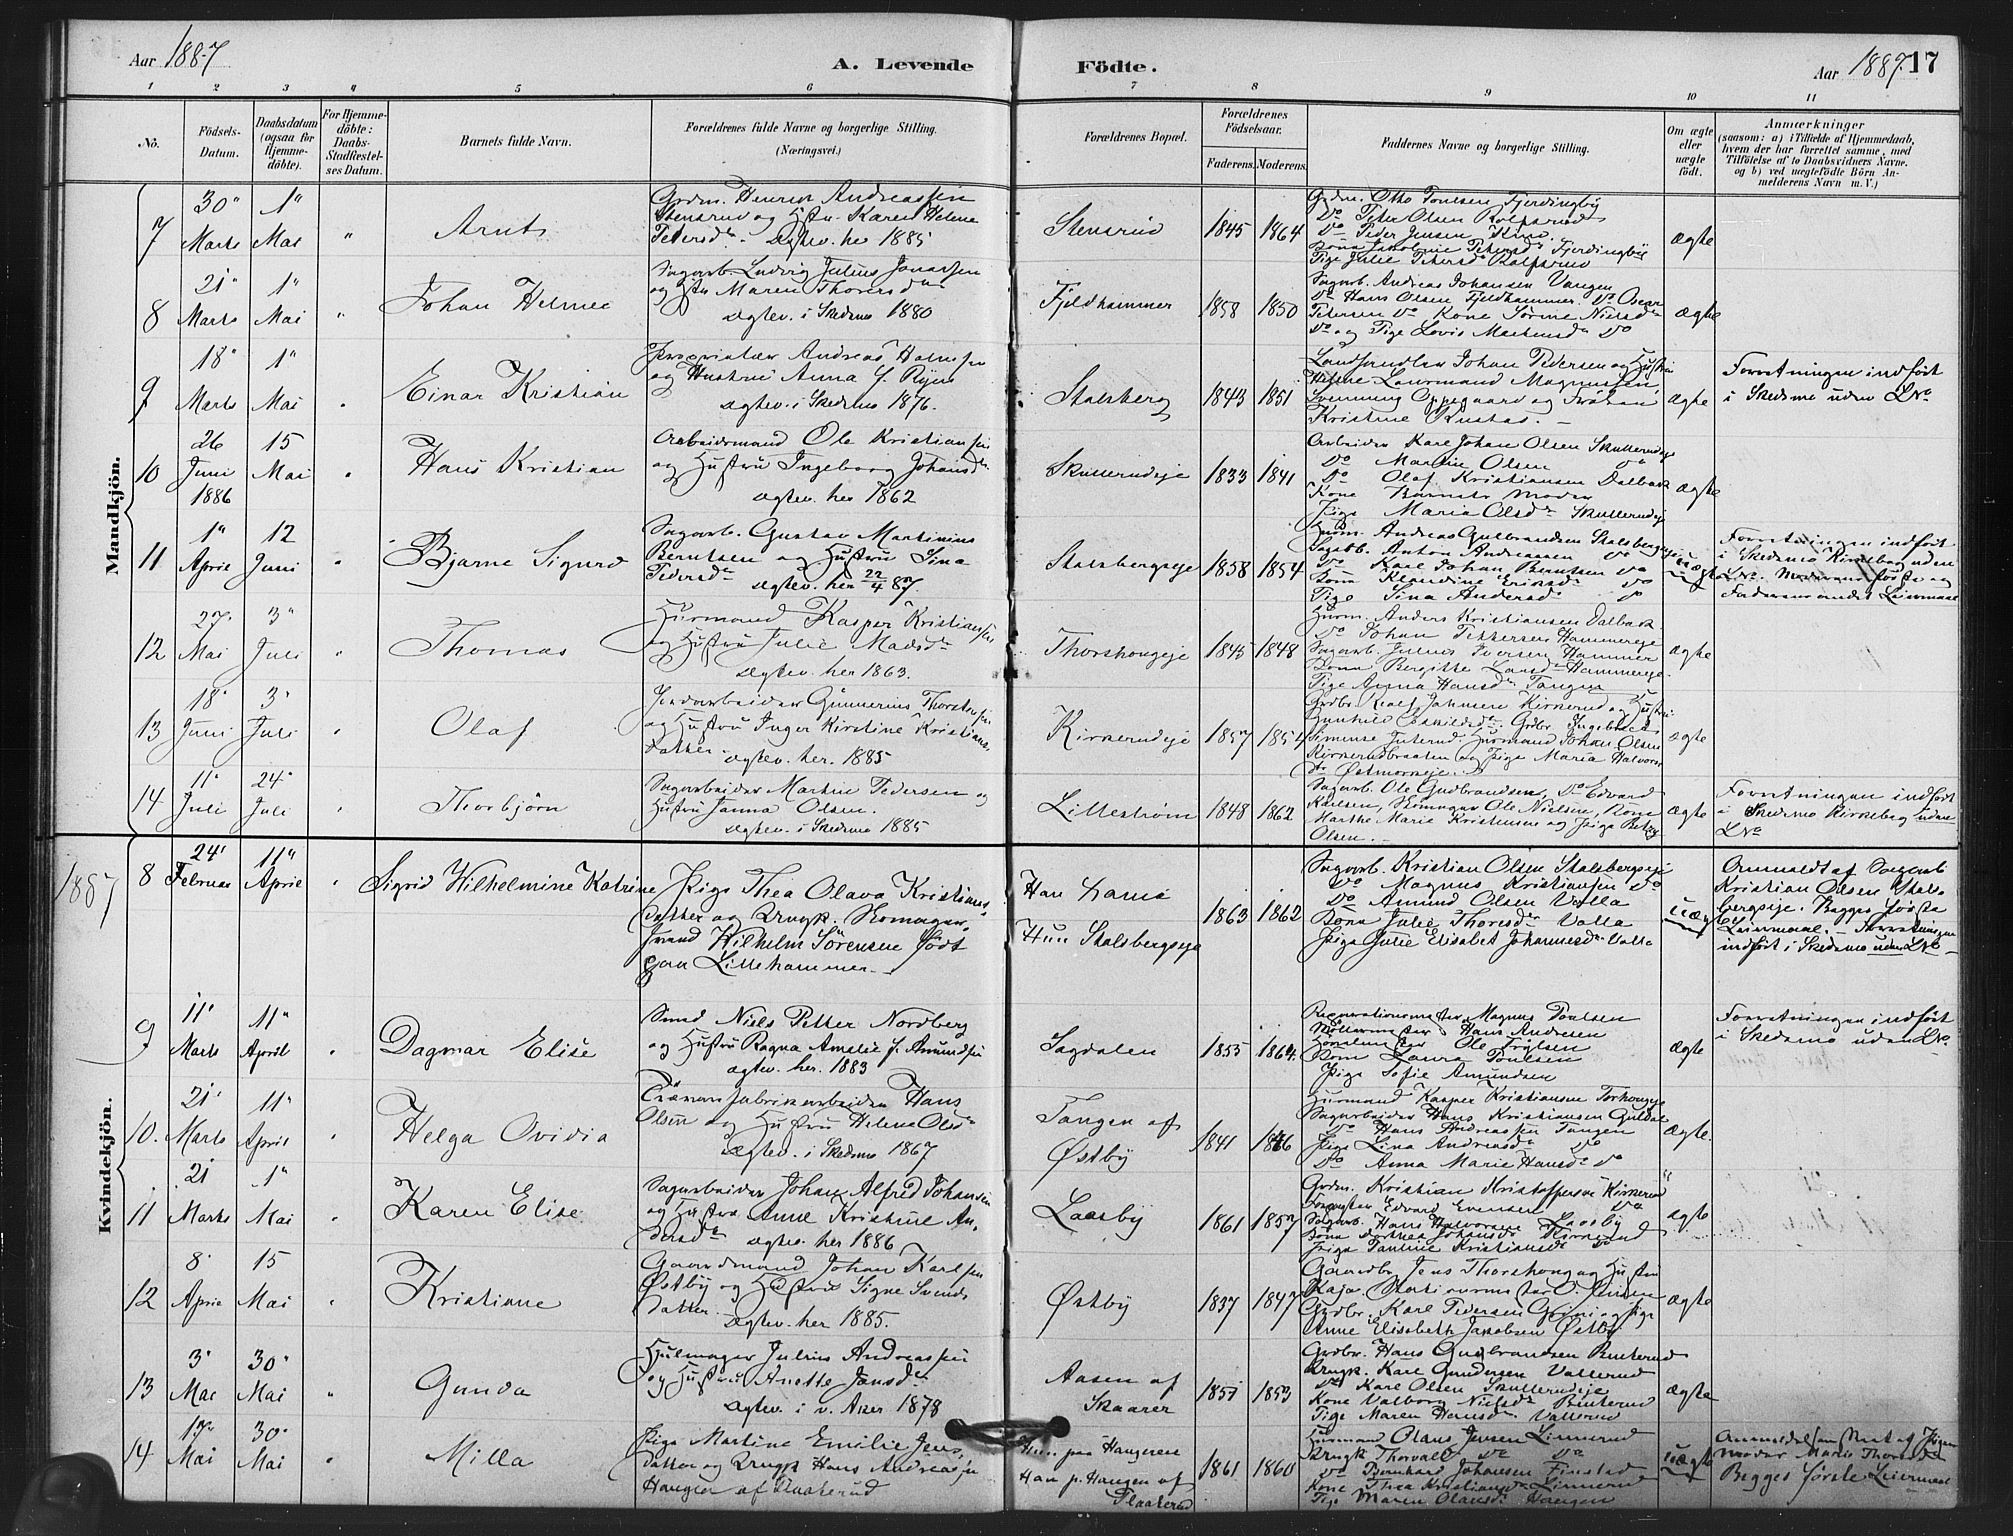 Aar 1887
A. Levende
Födte.
Aar 1887. 17
1 2 3 4 5 6 7 8 9 10 11
No.
Födsels-Datum.
Daabsdatum (ogsaa for Hjemmedöbte).
For Hjemmedöbte: Daabs-Stadfæstelses Datum.
Barnets fulde Navn.
Forældrenes fulde Navne og borgerlige Stilling.
(Næringsvei.)
Forældrenes Bopæl.
Forældrenes Födselsaar.
Faderens. Moderens.
Faddernes Navne og borgerlige Stilling.
Om ægte eller uægte födt.
Anmærkninger
(saasom: a) i Tilfælde af Hjemmedaab, hvem der har forrettet samme, med Tilföielse af to Daabsvidners Navne. og b) ved uægtefödte Börn Anmelderens Navn m. V.)
Mandkjön.
7
30 Marts
1 Mai
Arnt
Grdm. Henrik Andreassen
Stensrud og Hstu. Karen Helene
Petersd. Ægtev. her 1885
Stensrud
1845 1864
Grdm. Otto Poulsen Fjerdingby
Do Peter Olsen
Do Peder Jensen
Ægte
8
21 Marts
1 Mai
Johan Helmer
Sagarb. Ludvig Julius Jonassen
og Hstu Maren Thorersd
Ægtev. i Skedsmo 1880
Fjeldhammer
1858 1850
Sagarb. Andreas Johansen Vangen
Do Hans Olsen Fjeldhammer. Do Oscar
Petersen Do Kone Sørine Nielsd
Do og Pige Lovis Do
Ægte
9
18 Marts
1 Mai
Einar Kristian
Proprietær Andreas Holmsen
og Hustru Anna f. Ryen
Ægtev. i Skedsmo 1876.
Stalsberg
1843 1851
Landhandler Johan Pedersen og Hustru
Helene Laurmand Magnussen
Svenning Oppegaard og Frøken
Kristine
Ægte
Forretningen indført
i Skedsmo uden LNo
10
26 Juni 1886
15 Mai
Hans Kristian
Arbeidsmand Ole Kristiansen
og Hustru Ingeborg Johansd.
Ægtev. her 1862
Skullerudeje
1833 1841
Arbeider Karl Johan Olsen Skullerudeje
Do Martin Olsen Do
Do Olaf Kristiansen Dalbak
Kone Barnets Moder
Pige Maria Olsd. Skullerudeje
Ægte
11
1 April
12 Juni
Bjarne Sigurd
Sagarb. Gustav Martinius
Berntsen og Hustru Sina
Pedersd. Ægtev. her 22/4 87.
Stalsbergeje
1858 1854
Husm. Andreas Gulbrandsen Stalsbergeje
Sagarb. Anton Andreassen Do
Do Karl Johan Berntsen Do
Kona Klaudine Eriksd. Do
Pige Sina Andersd. Do
uægte
Forretningen indført
i Skedsmo Kirkebog uden
LNo. Moderens første og
Faderens andet Leiermaal
12
27 Mai
3 Juli
Thomas
Husmand Kasper Kristiansen
og Hustru Julie Madsd.
Ægtev. her 1863.
Thorshougeje
1845 1848
Husm. Anders Kristiansen Dalbak
Do Johan Pettersen Hammereje
Sagarb. Julius Iversen Hammer
Kona Bergitte Larsd. Hammereje
Pige Anna Hansd. Tangen
Ægte
13
18 Juni
3 Juli
Olaf
Jordarbeider Gunerius Thorstensen
og Hustru Inger Kirstine Kristians-
datter. Ægtev. her. 1885
Kirkerudeje
1857 1854
Ægte
14
11 Juli
24 Juli
Thorbjörn
Sagarbeider Martin Pedersen og
Hustru Janna Olsen.
Ægtev. i Skedsmo 1885
Lillestrøm
1848 1862
Sagarb. Ole Gudbrandsen, Do Edvard
Karlsen, Skomager Ole Nielsen, Kone
Marthe Marie Kristensen og Pige Betzy
Olsen.
Ægte
Forretningen indført
i Skedsmo Kirkebog uden
LNo
1887
Kvindekjön.
8
24 Februar
11 April
Sigrid Wilhelmine Katrine
Pige Thea Olava Kristians-
datter og Ungk. Skomager-
svend Wilhelm Sörensen født
paa Lillehammer.
Han
Hun Stalsbergeje
1863 1862
Sagarb. Kristian Olsen Stalsbergeje
Do Magnus Kristiansen Do
Do Amund Olsen Valla
Kona Julie Thorsd. Valla
Pige Julie Elisabet Johannesd. Valla
uægte
Anmeldt af Sagarb
Kristian Olsen Stals-
bergeje. Begges første
Leiermaal. Forretningen
indført i Skedsmo uden LNo
9
11 Marts
11 April
Dagmar Elise
Smed Niels Petter Nordberg
og Hustru Ragna Amalie f. Amundsen
Ægtev. her. 1883
Sagdalen
1855 1864
Magnus Poulsen
Hans Andresen
Laura Poulsen
Pige Sofie Amundsen
Ægte
Forretningen indført
i Skedsmo uden LNo
10
21 Marts
11 April
Helga Ovidia
Trævarefabrikarbeider Hans
Olsen og Hustru Helene Olsd.
Ægtev. i Skedsmo 1867
Tangen af
Østby
1841 1846
Husmand Kasper Kristiansen Torhougeje
Sagarbeider Hans Kristiansen
Do Hans Andreassen Tangen
Pige Lina Andreasd. Do
Do Anna Marie Hansd. Do
Ægte.
11
21 Marts
1 Mai
Karen Elise
Sagarbeider Johan Alfred Johansen
og Hustru Anne Kristine An-
dersd. Ægtev. her 1886
Laasby
1861 1857
Grdm. Kristian Kristoffersen Kirkerud
Edvard Evensen Do
Sagarb. Hans Halvorsen Laasby
Kona Dorthea Johansd. Kirkerud
Pige Pauline Kristiansd. Do
Ægte
12
8 April
15 Mai
Kristiane
Gaardmand Johan Karlsen
Østby og Hustru Signe Svends-
datter. Ægtev. her 1885.
Østby
1837 1847
Gaardbr. Jens Thorshoug og Hustru
Kaja
Grdbr. Karl Pedersen
Anne Elisabeth Jakobsen Østby
Ægte
13
3 Mai
30 Mai
Gunda
Hjulmager Julius Andreassen
og Hustru Anette Jansd.
Ægtev. i v. Aker 1878
Aasen af
Skaarer
1851 1853
Grdbr. Hans Gudbrandsen
Ungk. Karl Gundersen Vallerud
Do Karl Olsen Skullerudeje
Kone Valborg Nielsd.
Pige Maren Hansd. Vallerud
Ægte
14
Mai
30 Mai
Milla
Pige Martine Emilie Jens-
datter og Ungk Hans Andreassen
Haugen af Flaaterud
Hun paa Haugeren
Han p. Haugen af
Flaaterud
1861 1860
Husmand Olaus Jensen Linnerud
Ungk Thorvald Do Do
Do Bernhard Johansen Finstad
Kone Thea Kristiansd. Linnerud
Pige Maren Olausd. Haugen
uægte
Begges første Leiermaal